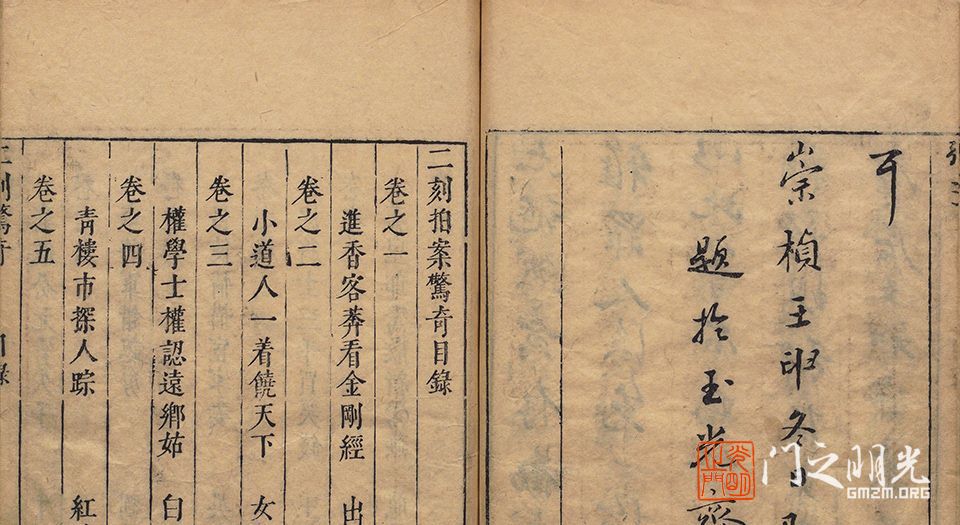 崇禎壬申冬日
題於玉光齋
二刻拍案驚奇目錄
卷之一
進香客莽看金剛經 出
卷之二
小道人一着饒天下 女
卷之三
權學士權認遠鄉姑 白
卷之四
青樓市探人踪 紅
卷之五
二刻驚奇 目錄
门之明光
GMZM.ORG